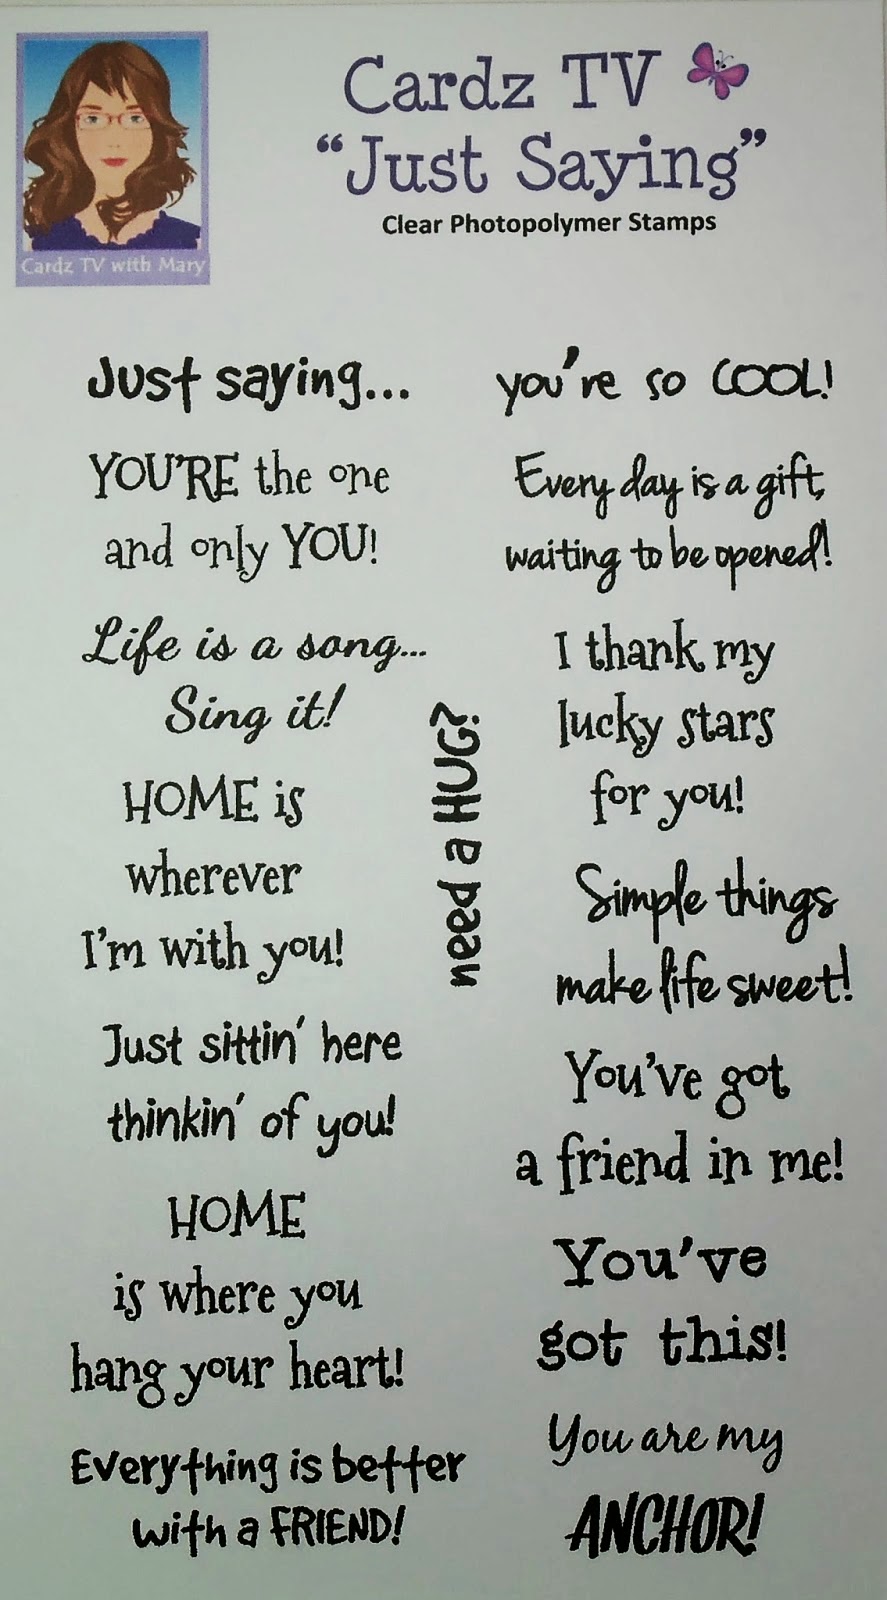 Cardz TV
“Just Saying”
Clear Photopolymer Stamps
Cardz TV with Mary
Just saying...
YOU'RE the one
and only YOU!
Life is a song...
Sing it!
HOME is
wherever
I'm with you!
Just sittin' here
thinkin' of you!
HOME
is where you
hang your heart!
Everything is better
with a FRIEND!
need a HUG?
you're so COOL!
Every day is a gift,
waiting to be opened!
I thank my
lucky stars
for you!
Simple things
make life sweet!
You've got
a friend in me!
You've
got this!
You are my
ANCHOR!